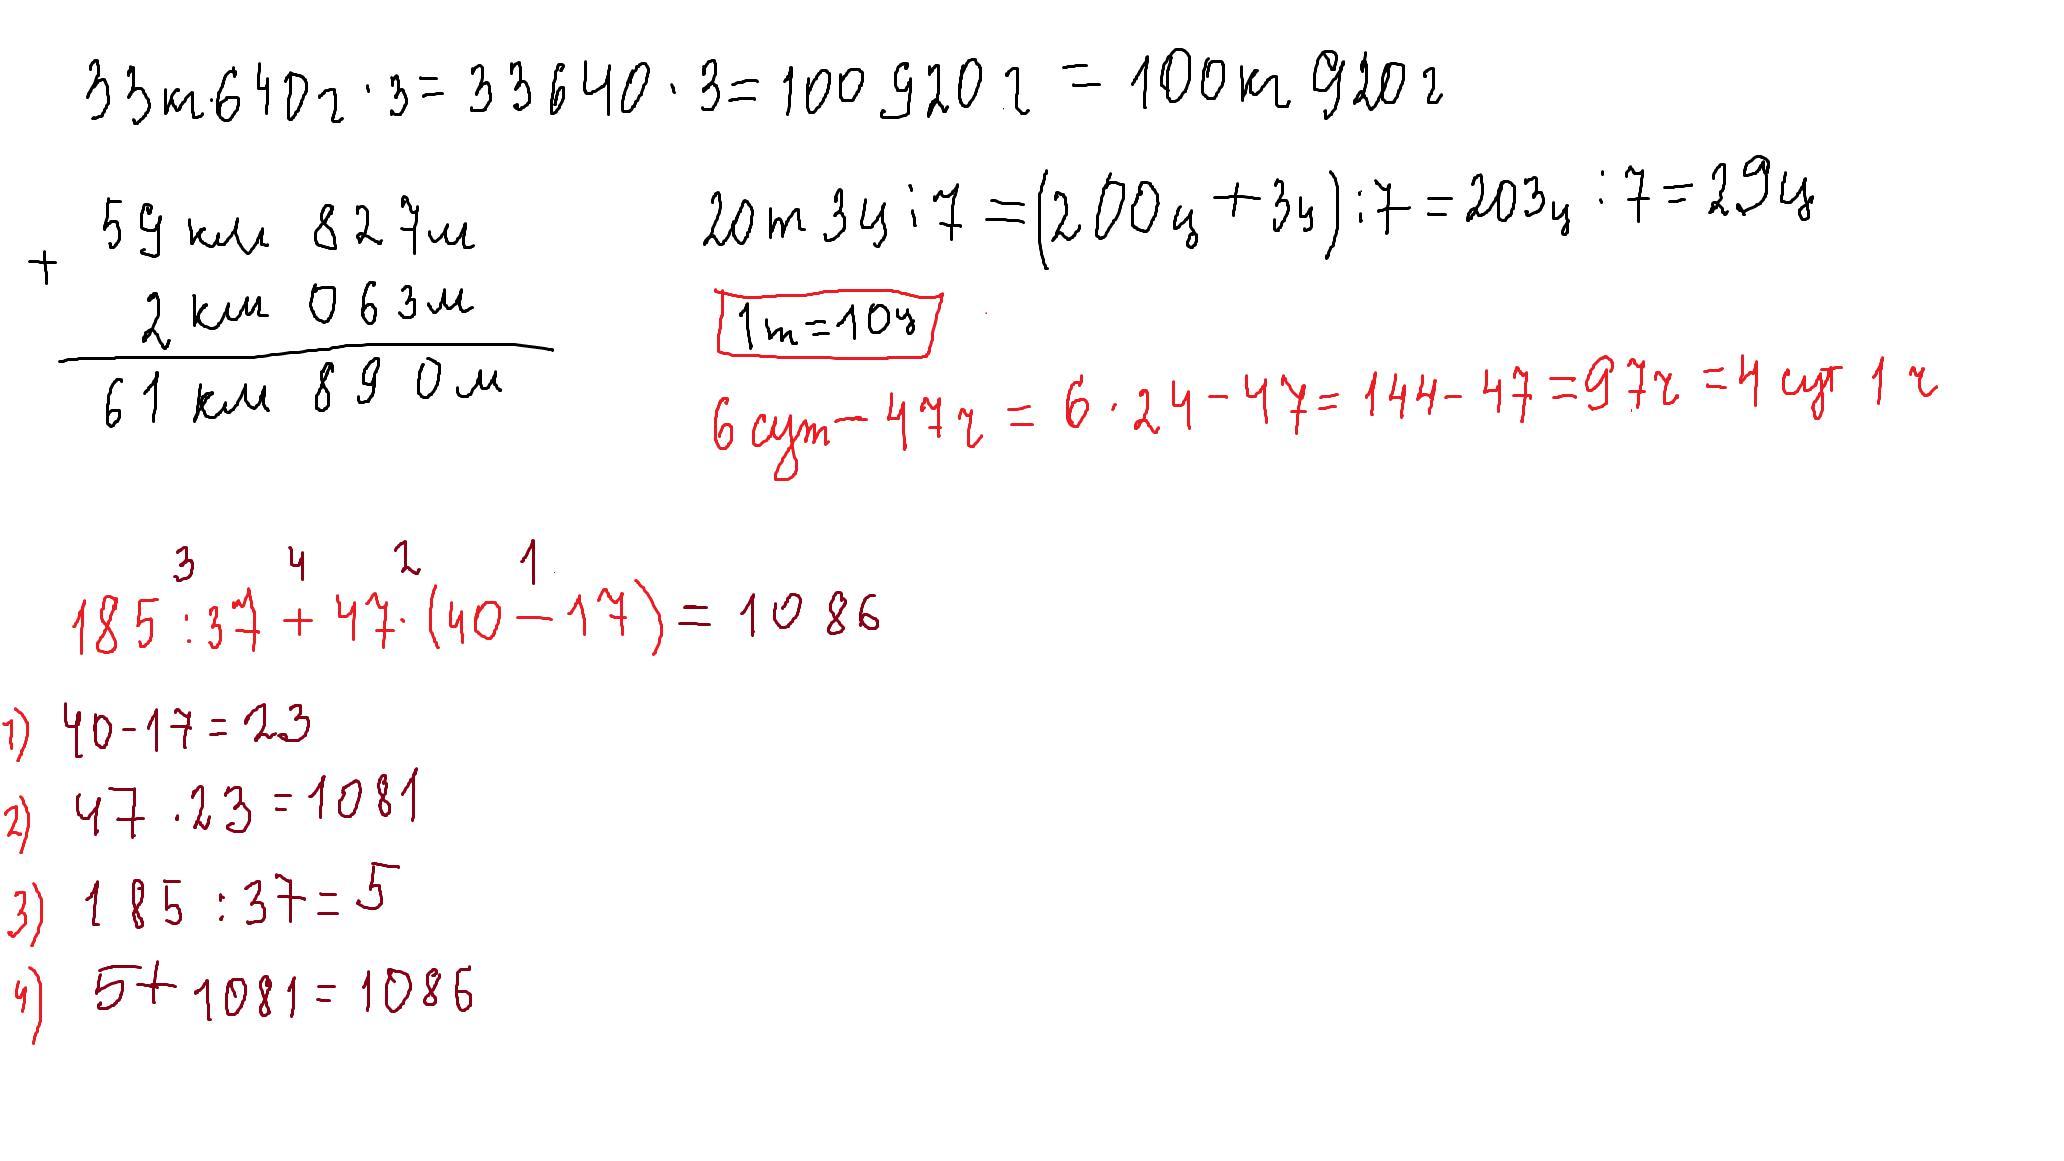 33кг 640г · 3 = 33640 · 3 = 100 920 г = 100кг 920г
59 км 827м
+
2 км 063м
61 км 890м
20т 3ц : 7 = (200ц + 3ц) : 7 = 203ц : 7 = 29ц
1т = 10ц
6 сут - 47ч = 6 · 24 - 47 = 144 - 47 = 97ч = 4 сут 1 ч
3 4 2 1
185 : 37 + 47 · (40 - 17) = 1086
1) 40 - 17 = 23
2) 47 · 23 = 1081
3) 185 : 37 = 5
4) 5 + 1081 = 1086